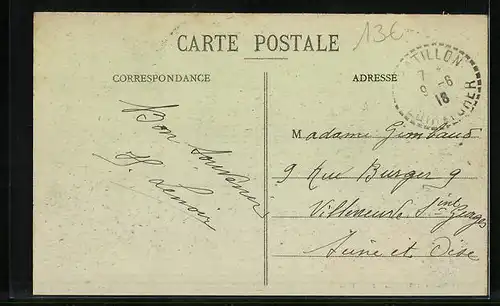 13€
CARTE POSTALE
CORRESPONDANCE
ADRESSE
TILLON
7
9 -6
18
Bon Souvenir
H. Lenoir
Madame Gimbaud
9 Rue Burger 9
Villeneuve Sint Georges
Seine et Oise